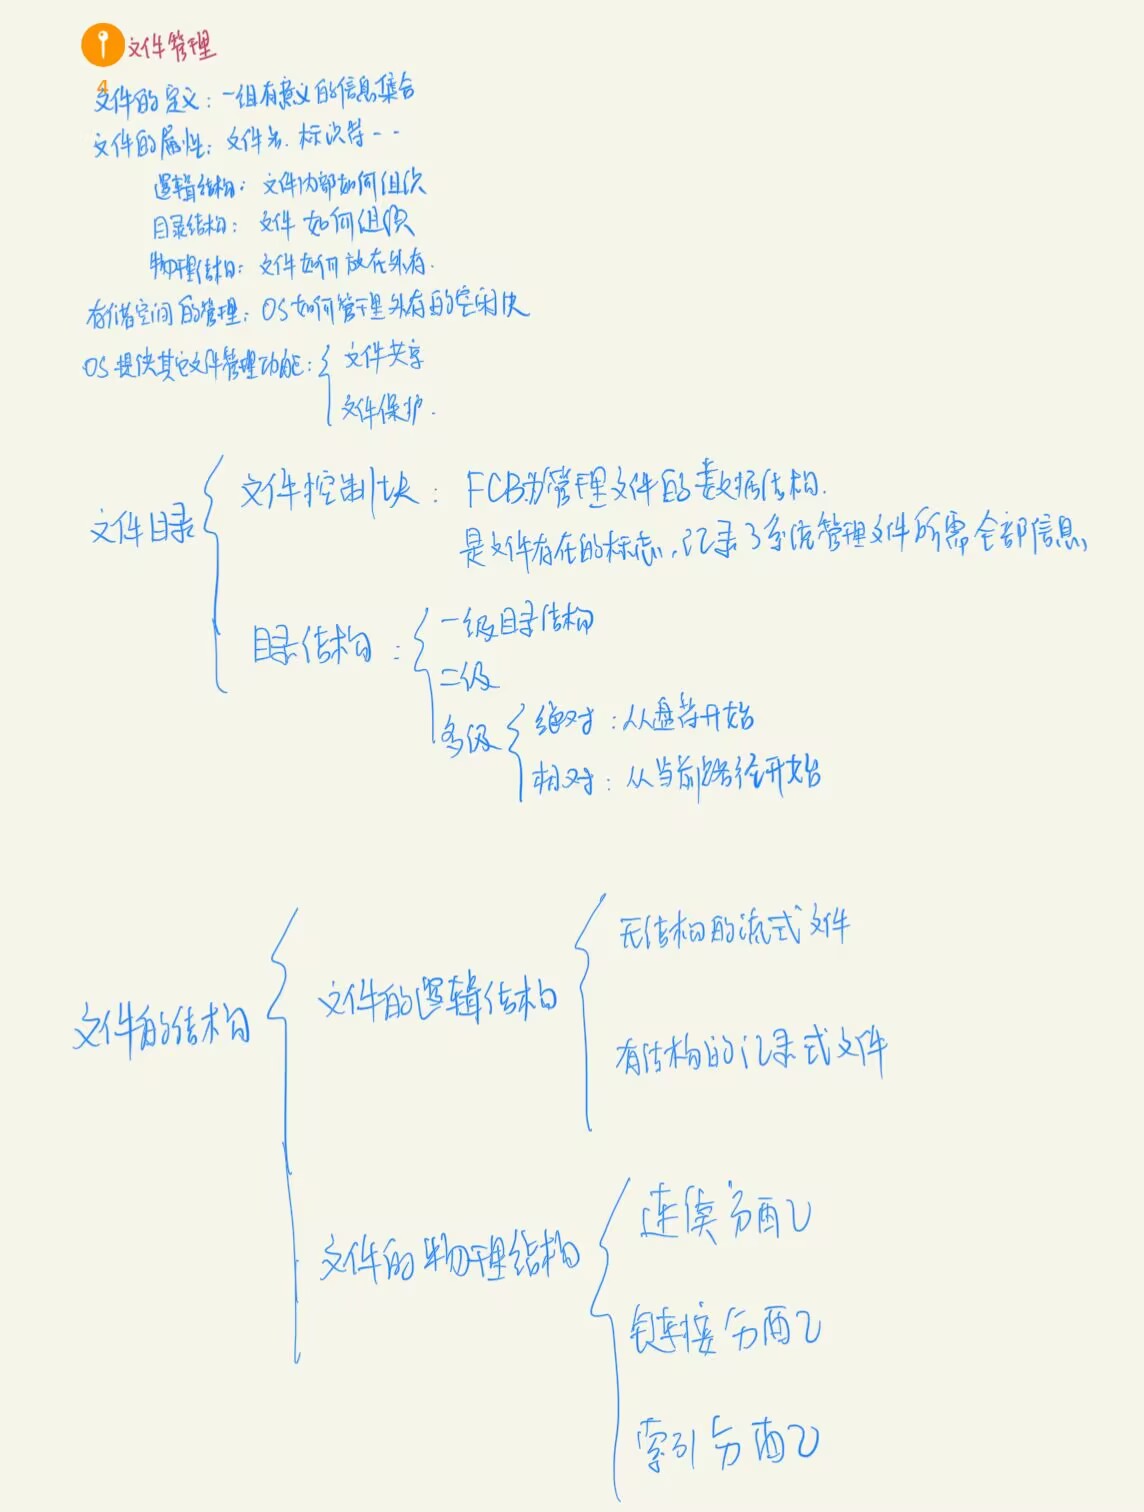 文件管理
4
文件的定义：一组有意义的信息集合
文件的属性：文件名、标识符--
逻辑结构：文件内部如何组织
目录结构：文件如何组织
物理结构：文件如何放在外存.
存储空间的管理：OS如何管理外存的空闲块
OS提供其它文件管理功能：
文件共享
文件保护.
文件目录
文件控制块：FCB为管理文件的数据结构.
是文件存在的标志，记录了系统管理文件所需全部信息
目录结构：
一级目录结构
二级
多级
绝对：从盘符开始
相对：从当前路径开始
文件的结构
文件的逻辑结构
无结构的流式文件
有结构的记录式文件
文件的物理结构
连续分配
链接分配
索引分配